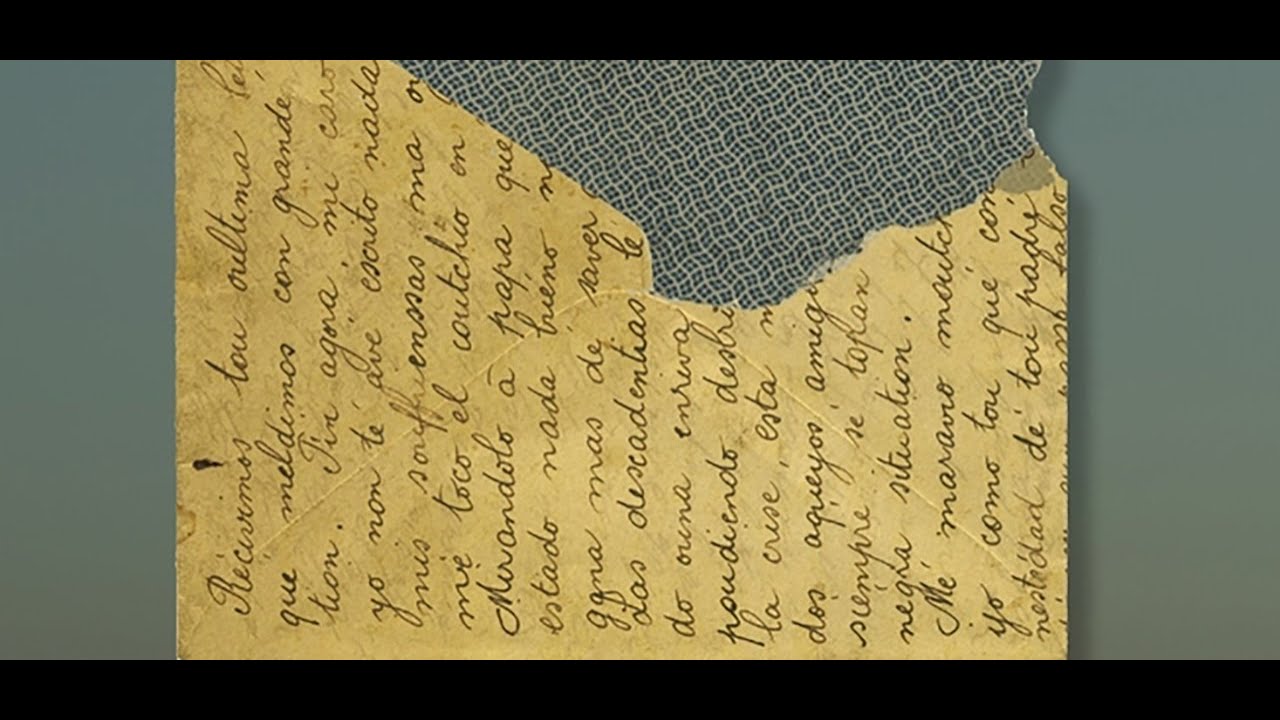 Récivimos tou oultima lé
que meldimos con grande
tion. Tin agora, mi caro
yo non té avé escrito nada
mis souffuenssas ma o
mié toco el coutchio en
Mirandolo à papa que
estado nada buéno n
ggna mas dé saver
Las descadentias le
do ouna enriva
poudiendo desri
la crise, esta n
dos aqueyos amig
siempré sé topan
negra situation.
Mé maravio moutch
yo como tou qué con
néstédad dé tou padré